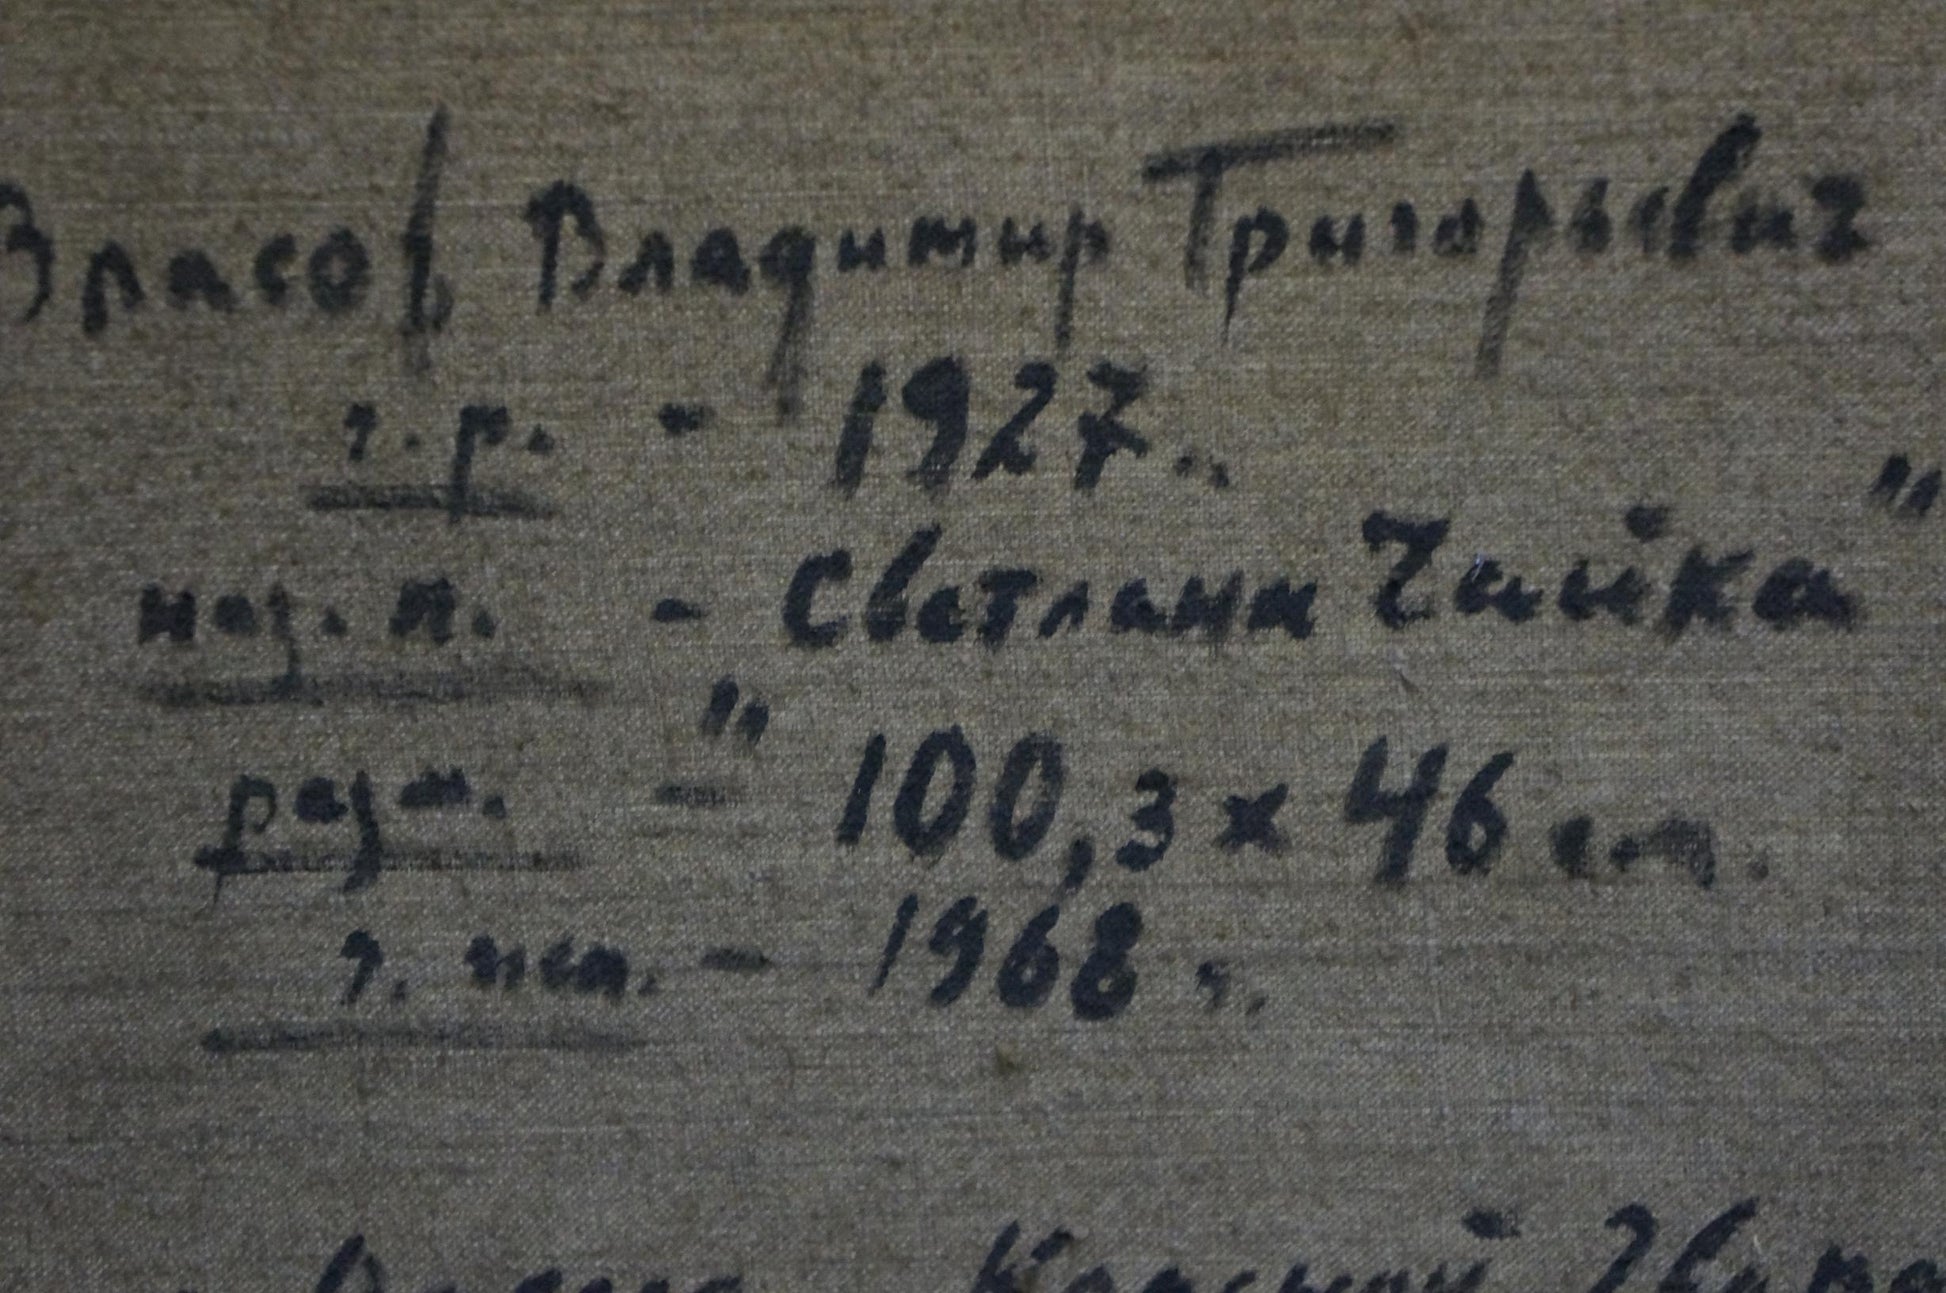 Власов Владимир Григорьевич
г.р. - 1927 г.
наз. к. - "Светлана Чайка"
разм. - 100,3 x 46 см.
г. исп. - 1968 г.
Красный